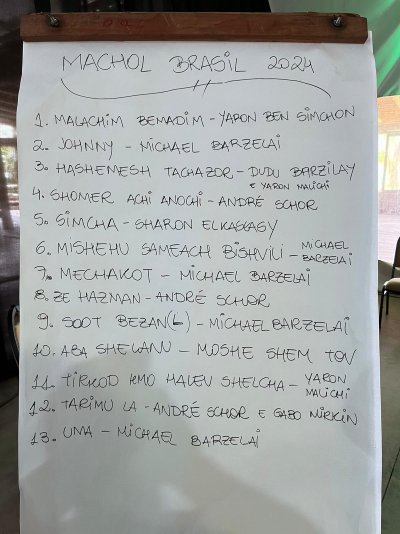 MACHOL BRASIL 2024
1. MALACHIM BEMADIM - YARON BEN SIMCHON
2. JOHNNY - MICHAEL BARZELAI
3. HASHEMESH TACHAZOR - DUDU BARZILAY
E YARON MALICHI
4. SHOMER ACHI ANOCHI - ANDRÉ SCHOR
5. SIMCHA - SHARON ELKASLASY
6. MISHEHU SAMEACH BISHVILI - MICHAEL
BARZELAI
7. MECHAKOT - MICHAEL BARZELAI
8. ZE HAZMAN - ANDRÉ SCHOR
9. SOOT BEZAN(L) - MICHAEL BARZELAI
10. ABA SHELANU - MOSHE SHEM TOV
11. TIRKOD KMO HALEV SHELCHA - YARON
MALICHI
12. TARIMU LA - ANDRÉ SCHOR E GABO MIRKIN
13. UMA - MICHAEL BARZELAI